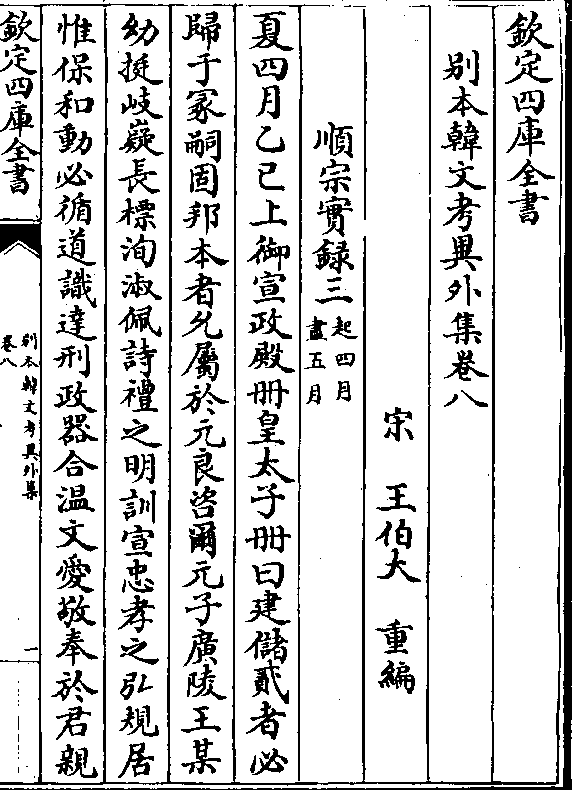 欽定四庫全書
别本韓文考異外集卷八
宋 王伯大 重編
順宗實録三起四月盡五月
夏四月乙巳上御宣政殿冊皇太子冊曰建儲貳者必
歸于冢嗣固邦本者允屬於元良咨爾元子廣陵王某
幼挺岐嶷長標洵淑佩詩禮之明訓宣忠孝之弘規居
惟保和動必循道識達刑政器合温文愛敬奉於君親
欽定四庫全書
别本韓文考異外集
卷八
一